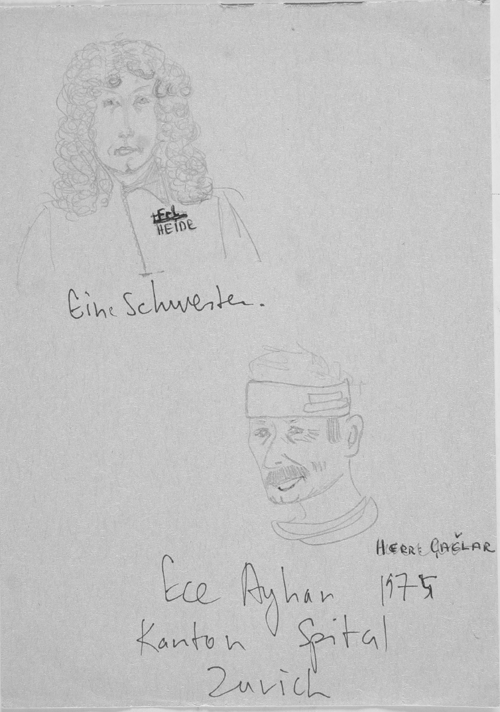 HEIDE
Eine Schwester.
HERRE ÇAĞLAR
Ece Ayhan 1975
Kanton Spital
Zurich